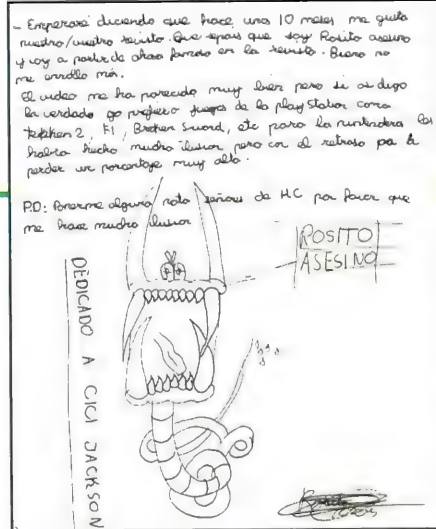 - Empezaré diciendo que hace unos 10 meses me gusta
nuestro/vuestro revista. Que sepais que soy Rosito asesino
y soy a partir de ahora famoso en la revista. Bueno no
me enrollo más.
El video me ha parecido muy bien pero si os digo
la verdad yo prefiero juegos de la play station como
tekken 2, F1, Broken Sword, etc para la nintendera les
habría hecho mucha ilusion pero con el retraso pa a
perder un porcentaje muy alto.
P.D: Ponerme alguna nota señores de H.C por favor que
me hace mucha ilusion
ROSITO
ASESINO
DEDICADO A CICI JACKSON